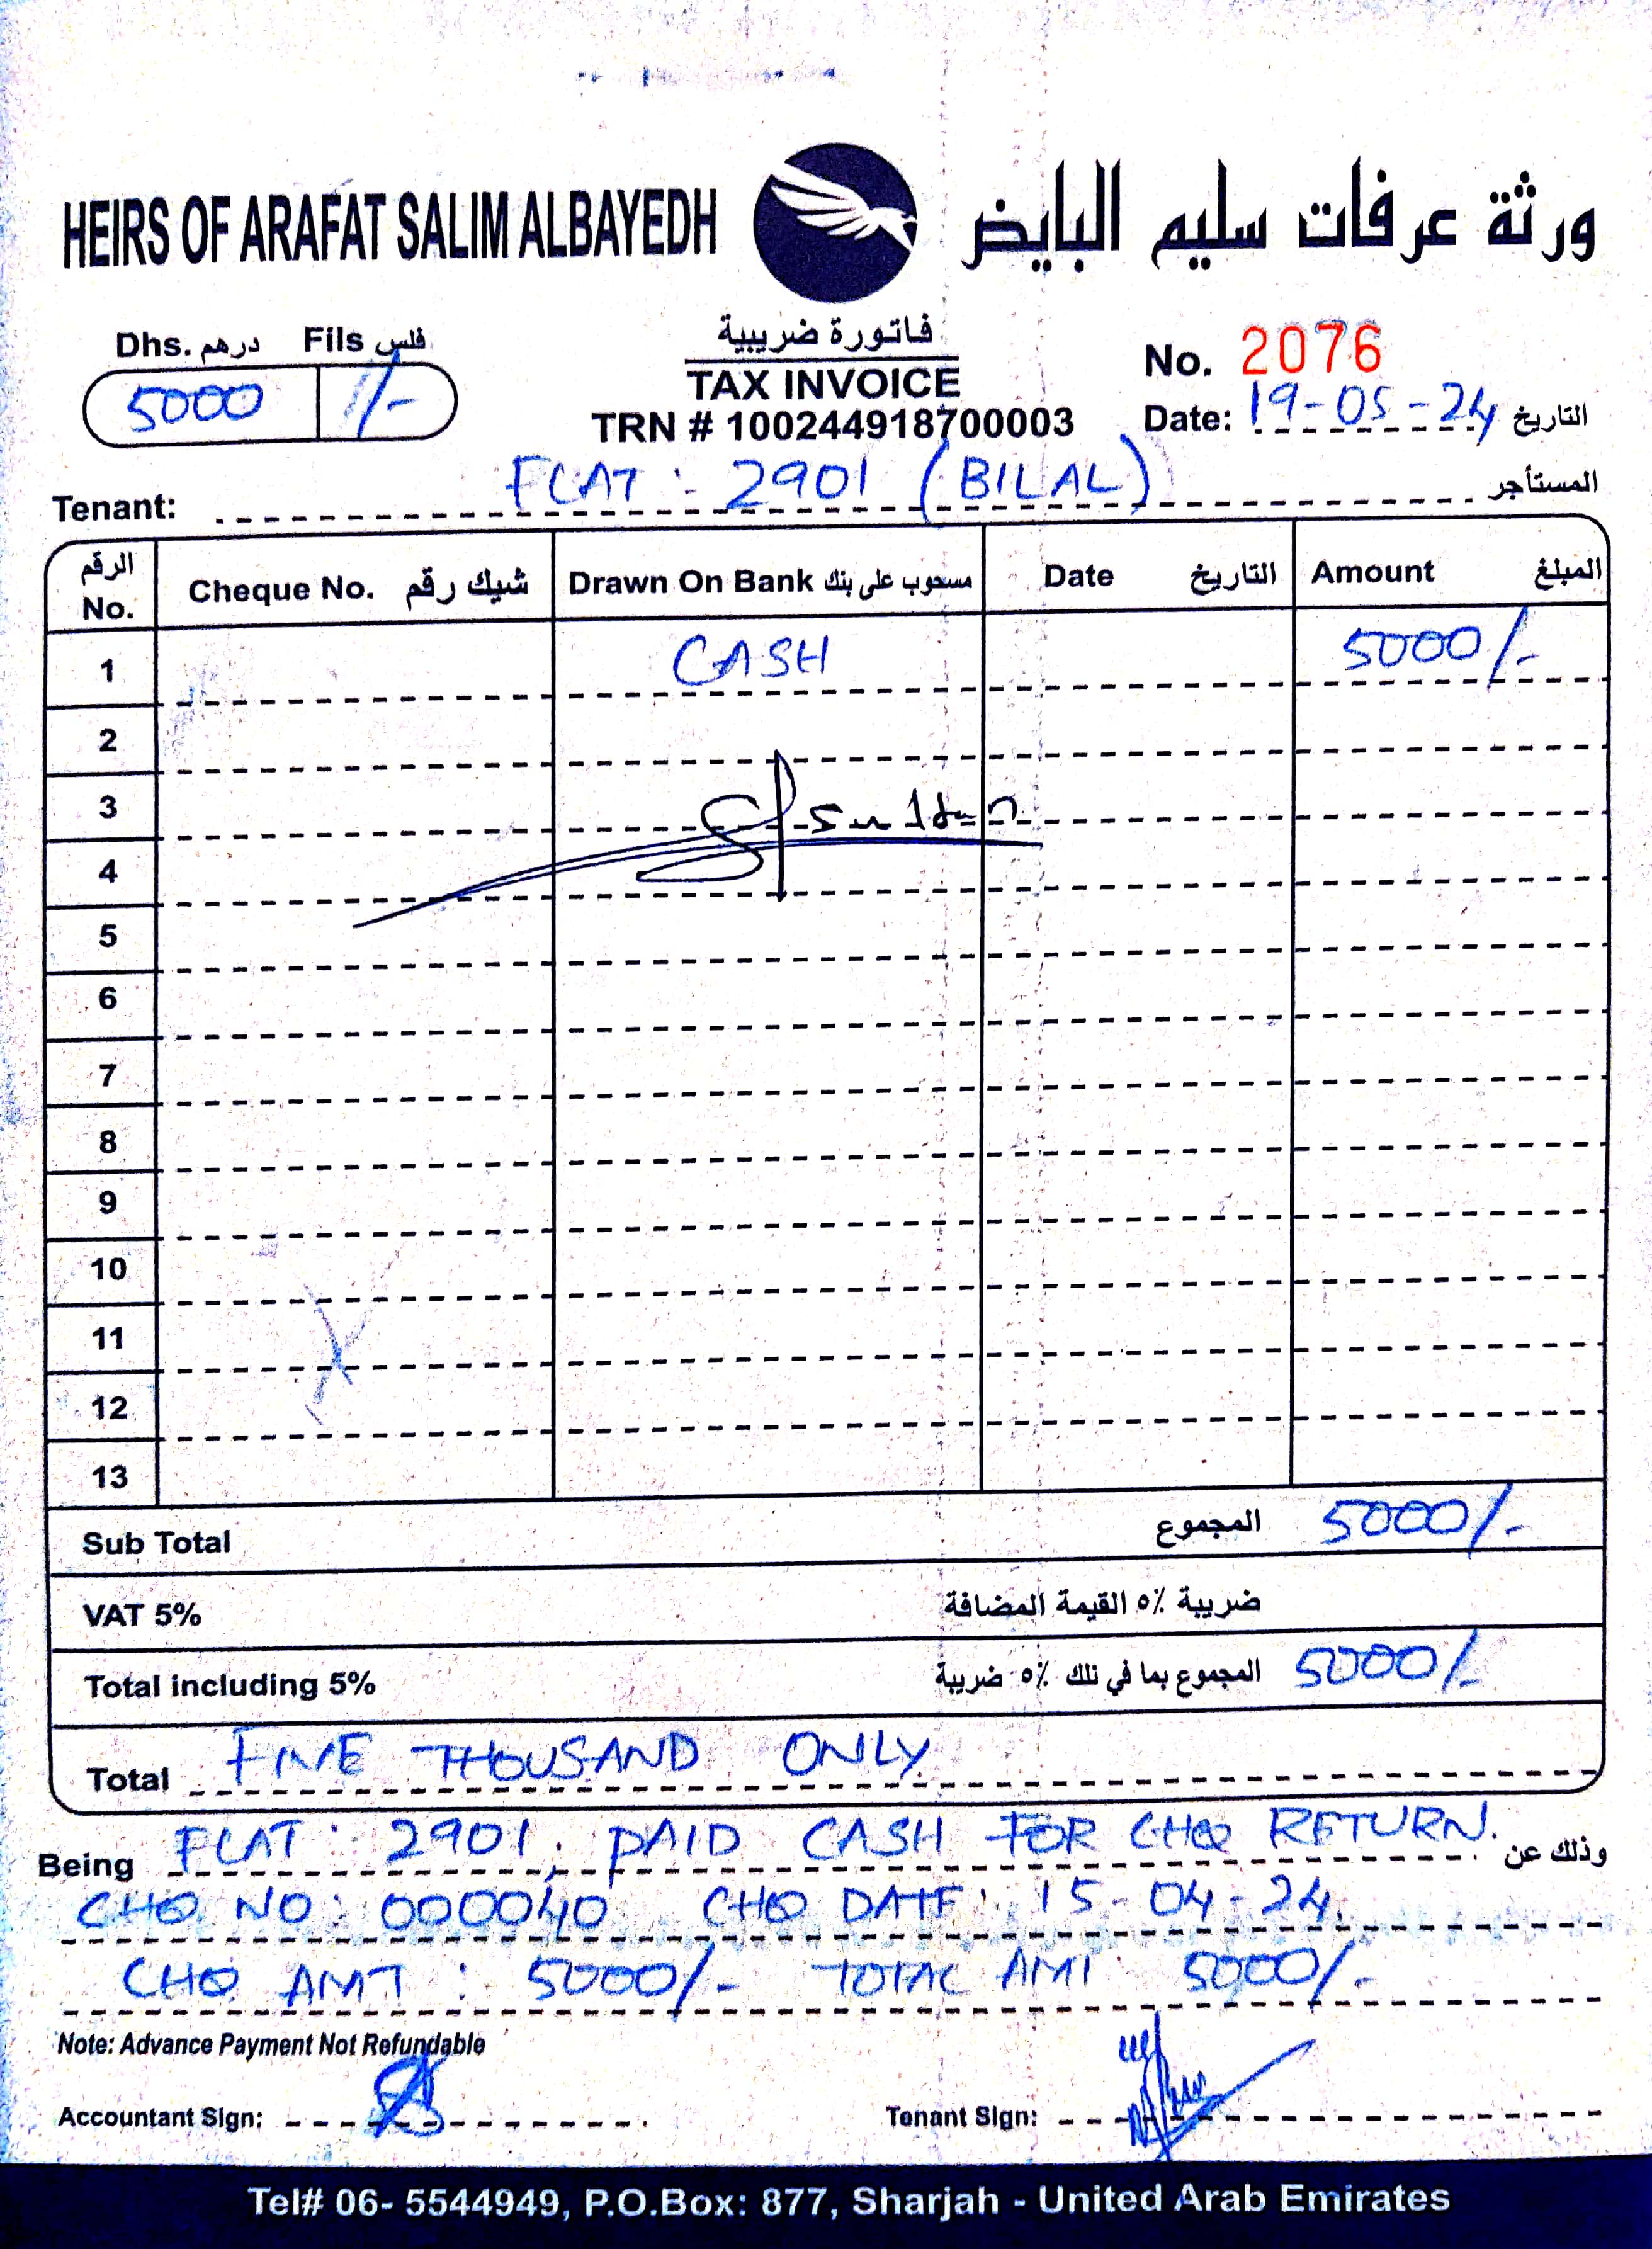 HEIRS OF ARAFAT SALIM ALBAYEDH ورثة عرفات سليم البايض
Dhs. درهم Fils فلس
5000 /-
فاتورة ضريبية
TAX INVOICE
TRN # 100244918700003
No. 2076
Date: 19-05-24 التاريخ
Tenant: FLAT : 2901 (BILAL) المستأجر
الرقم No. Cheque No. شيك رقم Drawn On Bank مسحوب على بنك Date التاريخ Amount المبلغ
1 CASH 5000/-
2
3 Sultan
4
5
6
7
8
9
10
11
12
13
Sub Total المجموع 5000/-
VAT 5% ضريبة ٥٪ القيمة المضافة
Total including 5% المجموع بما في ذلك ٥٪ ضريبة 5000/-
Total FIVE THOUSAND ONLY
Being FLAT : 2901, PAID CASH FOR CHQ RETURN. وذلك عن
CHQ NO : 000040 CHQ DATE : 15-04-24.
CHQ AMT : 5000/- TOTAL AMT 5000/-
Note: Advance Payment Not Refundable
Accountant Sign: Tenant Sign:
Tel# 06- 5544949, P.O.Box: 877, Sharjah - United Arab Emirates